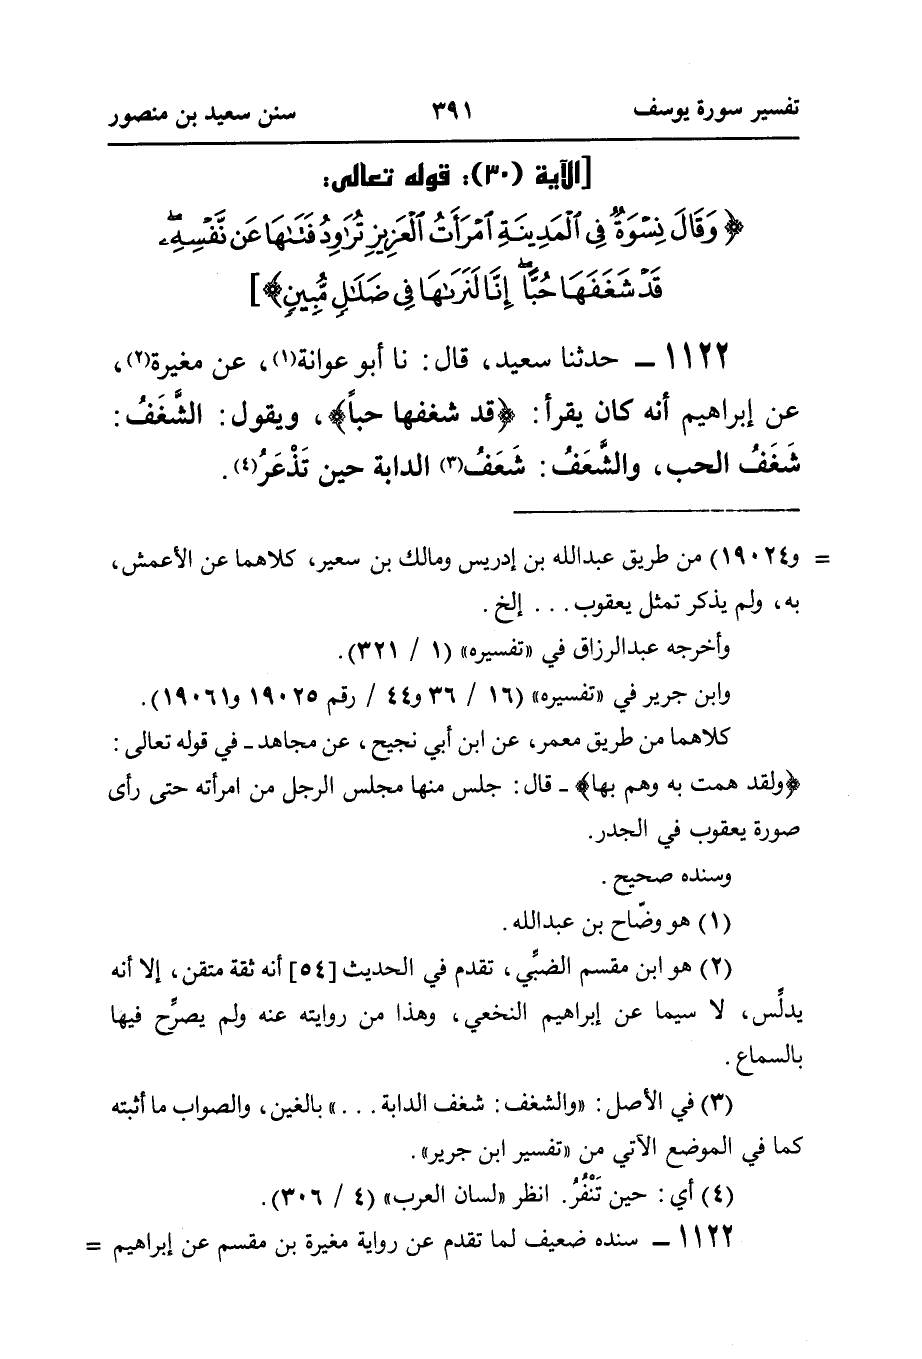 تفسير سورة يوسف ٣٩١ سنن سعيد بن منصور
[الآية (٣٠): قوله تعالى:
﴿ وَقَالَ نِسْوَةٌ فِي ٱلْمَدِينَةِ ٱمْرَأَتُ ٱلْعَزِيزِ تُرَٰوِدُ فَتَىٰهَا عَن نَّفْسِهِۦۖ
قَدْ شَغَفَهَا حُبًّاۖ إِنَّا لَنَرَىٰهَا فِي ضَلَٰلٍ مُّبِينٍ﴾]
١١٢٢ ــ حدثنا سعيد، قال: نا أبو عوانة(١)، عن مغيرة(٢)،
عن إبراهيم أنه كان يقرأ: ﴿قد شغفها حباً﴾، ويقول: الشَّغَفُ:
شَغَفُ الحب، والشَّعَفُ: شَعَفُ(٣) الدابة حين تَذْعَرُ(٤).
= و١٩٠٢٤) من طريق عبدالله بن إدريس ومالك بن سعير، كلاهما عن الأعمش،
به، ولم يذكر تمثل يعقوب... إلخ.
وأخرجه عبدالرزاق في «تفسيره» (١ / ٣٢١).
وابن جرير في «تفسيره» (١٦ / ٣٦ و٤٤ / رقم ١٩٠٢٥ و١٩٠٦١).
كلاهما من طريق معمر، عن ابن أبي نجيح، عن مجاهد ـ في قوله تعالى:
﴿ولقد همت به وهم بها﴾ ـ قال: جلس منها مجلس الرجل من امرأته حتى رأى
صورة يعقوب في الجدر.
وسنده صحيح.
(١) هو وضّاح بن عبدالله.
(٢) هو ابن مقسم الضبِّي، تقدم في الحديث [٥٤] أنه ثقة متقن، إلا أنه
يدلِّس، لا سيما عن إبراهيم النخعي، وهذا من روايته عنه ولم يصرِّح فيها
بالسماع.
(٣) في الأصل: «والشغف: شغف الدابة...» بالغين، والصواب ما أثبته
كما في الموضع الآتي من «تفسير ابن جرير».
(٤) أي: حين تَنْفُرُ. انظر «لسان العرب» (٤ / ٣٠٦).
١١٢٢ ــ سنده ضعيف لما تقدم عن رواية مغيرة بن مقسم عن إبراهيم =